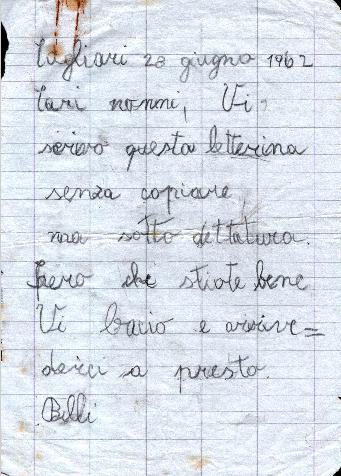 Cagliari 28 giugno 1962
Cari nonni, Vi
scrivo questa letterina
senza copiare,
ma sotto dettatura.
Spero che stiate bene
Vi bacio e arrive=
derci a presto.
Billi